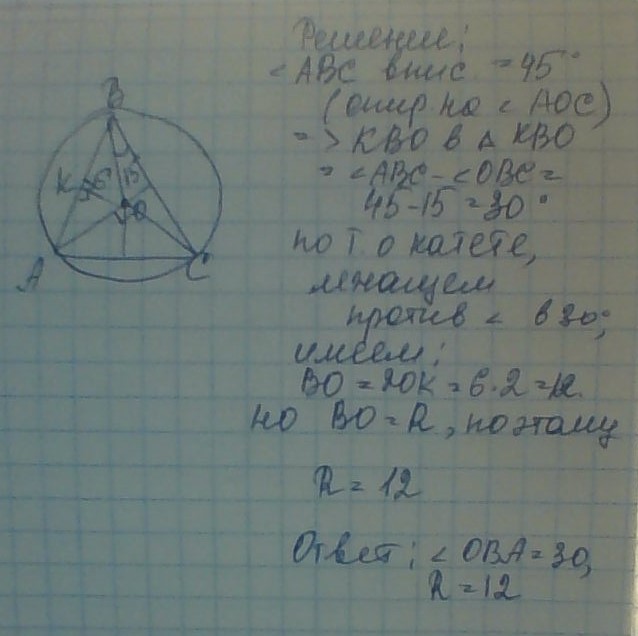 Решение:
< ABC впис = 45°
(опир на < AOC)
=> KBO в △ KBO
= <ABC - <OBC =
45-15 = 30°
по т. о катете,
лежащем
против < в 30;
имеем:
BO = 2OK = 6·2 = 12.
но BO = R, поэтому
R = 12
Ответ: < OBA = 30,
R = 12
B
K 6 15
O
A C